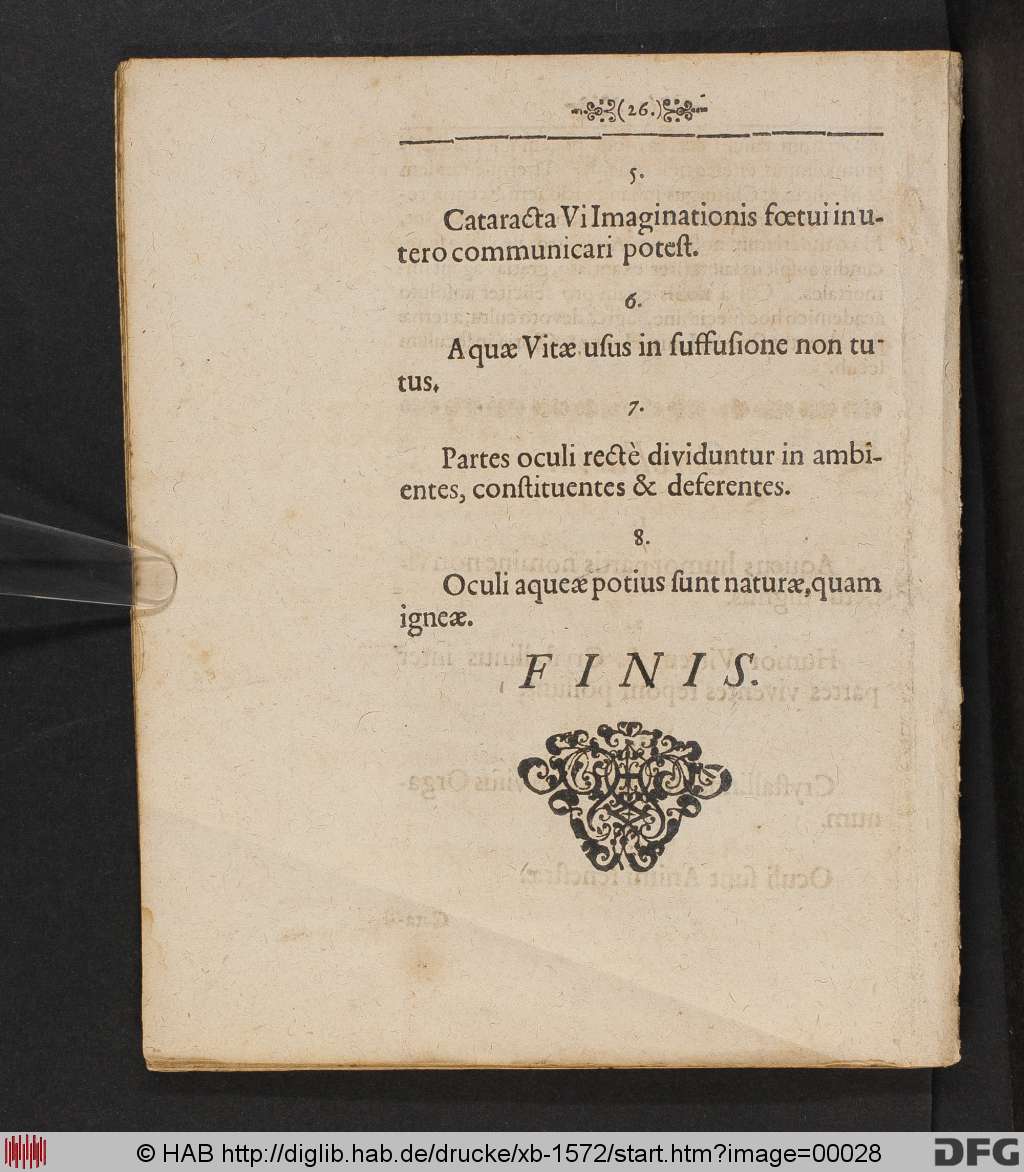 (26.)
5.
Cataracta Vi Imaginationis fœtui in u-
tero communicari poteſt.
6.
Aquæ Vitæ uſus in ſuffuſione non tu-
tus.
7.
Partes oculi rectè dividuntur in ambi-
entes, conſtituentes & deferentes.
8.
Oculi aqueæ potius ſunt naturæ, quam
igneæ.
FINIS.
© HAB http://diglib.hab.de/drucke/xb-1572/start.htm?image=00028
DFG